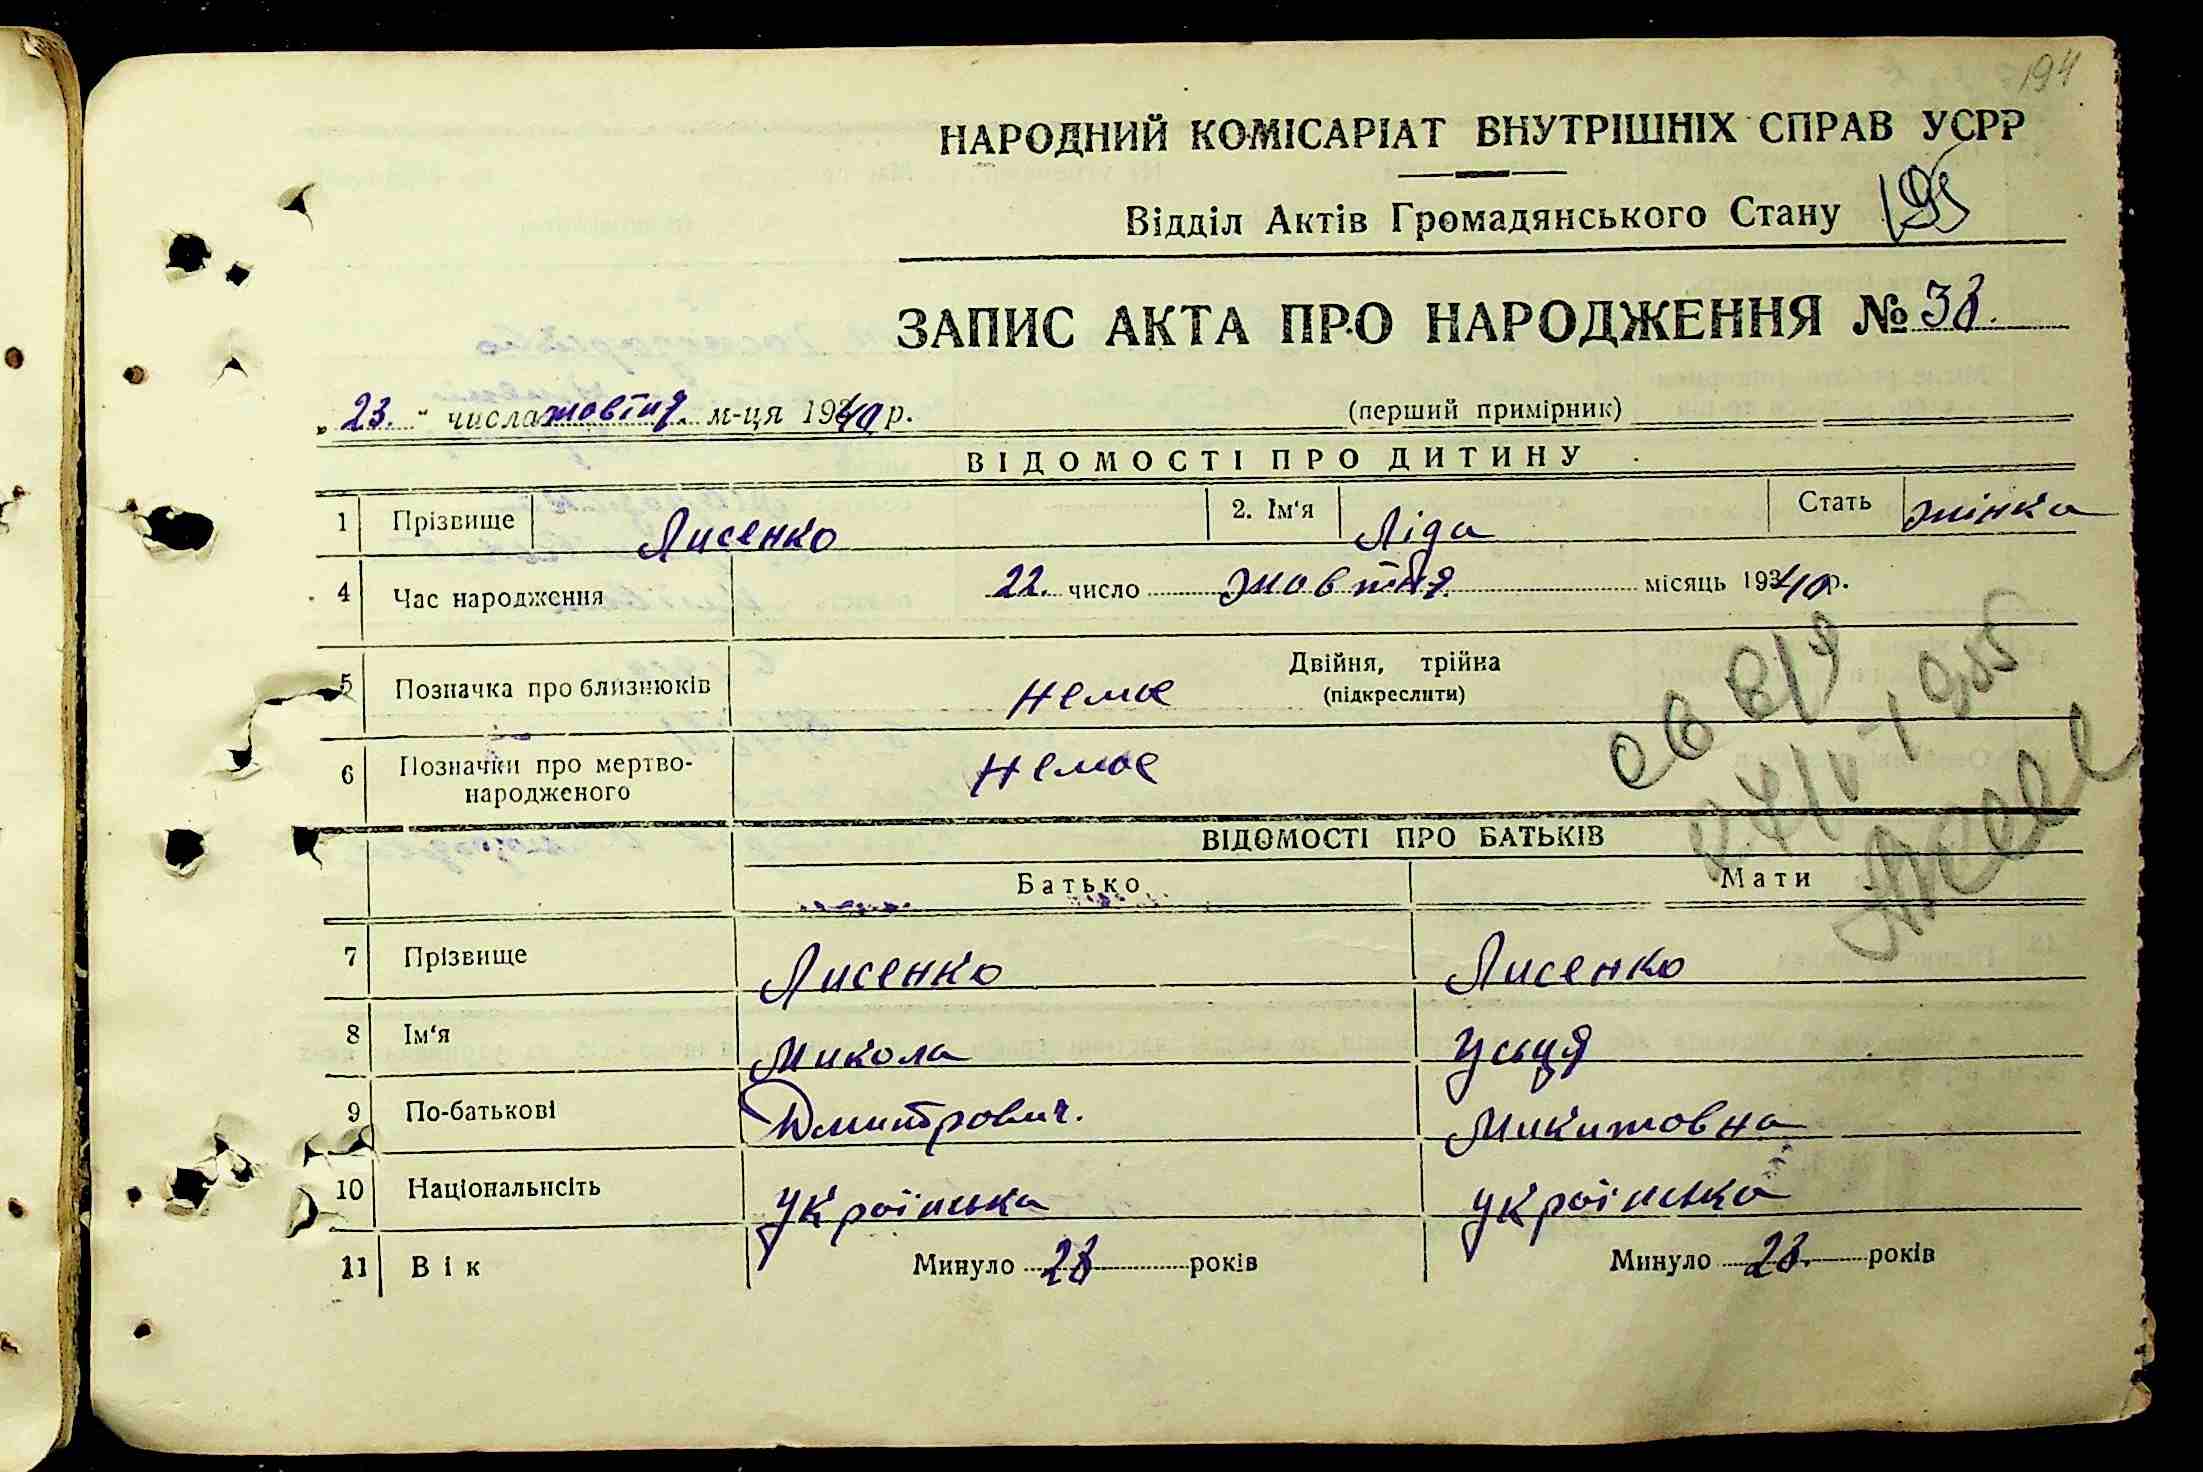 194
НАРОДНИЙ КОМІСАРІАТ ВНУТРІШНІХ СПРАВ УСРР
Відділ Актів Громадянського Стану 195
ЗАПИС АКТА ПРО НАРОДЖЕННЯ № 38.
„23." числа жовтня м-ця 1940 р. (перший примірник)
ВІДОМОСТІ ПРО ДИТИНУ
1 Прізвище Лисенко 2. Ім'я Ліда Стать жінка
4 Час народження 22. число жовтня місяць 1940 р.
5 Позначка про близнюків немає Двійня, трійна (підкреслити)
6 Позначки про мертво-
народженого немає
ВІДОМОСТІ ПРО БАТЬКІВ
Батько Мати
7 Прізвище Лисенко Лисенко
8 Ім'я Микола Усьця
9 По-батькові Дмитрович. Микитовна
10 Національнсіть українська українська
11 Вік Минуло 28 років Минуло 28. років